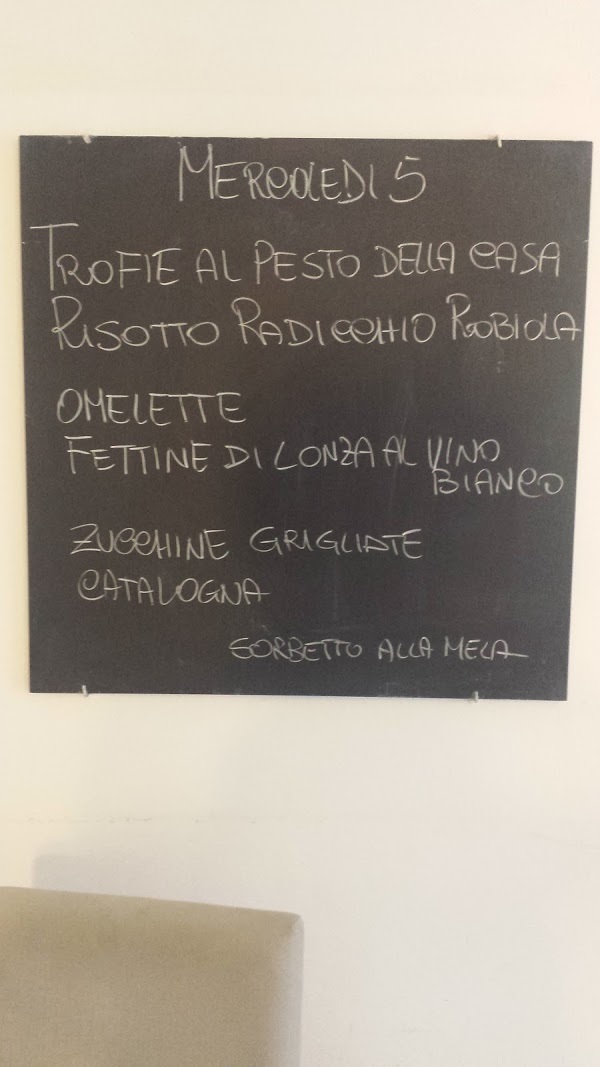 MERCOLEDI 5
TROFIE AL PESTO DELLA CASA
RISOTTO RADICCHIO ROBIOLA
OMELETTE
FETTINE DI LONZA AL VINO
BIANCO
ZUCCHINE GRIGLIATE
CATALOGNA
SORBETTO ALLA MELA